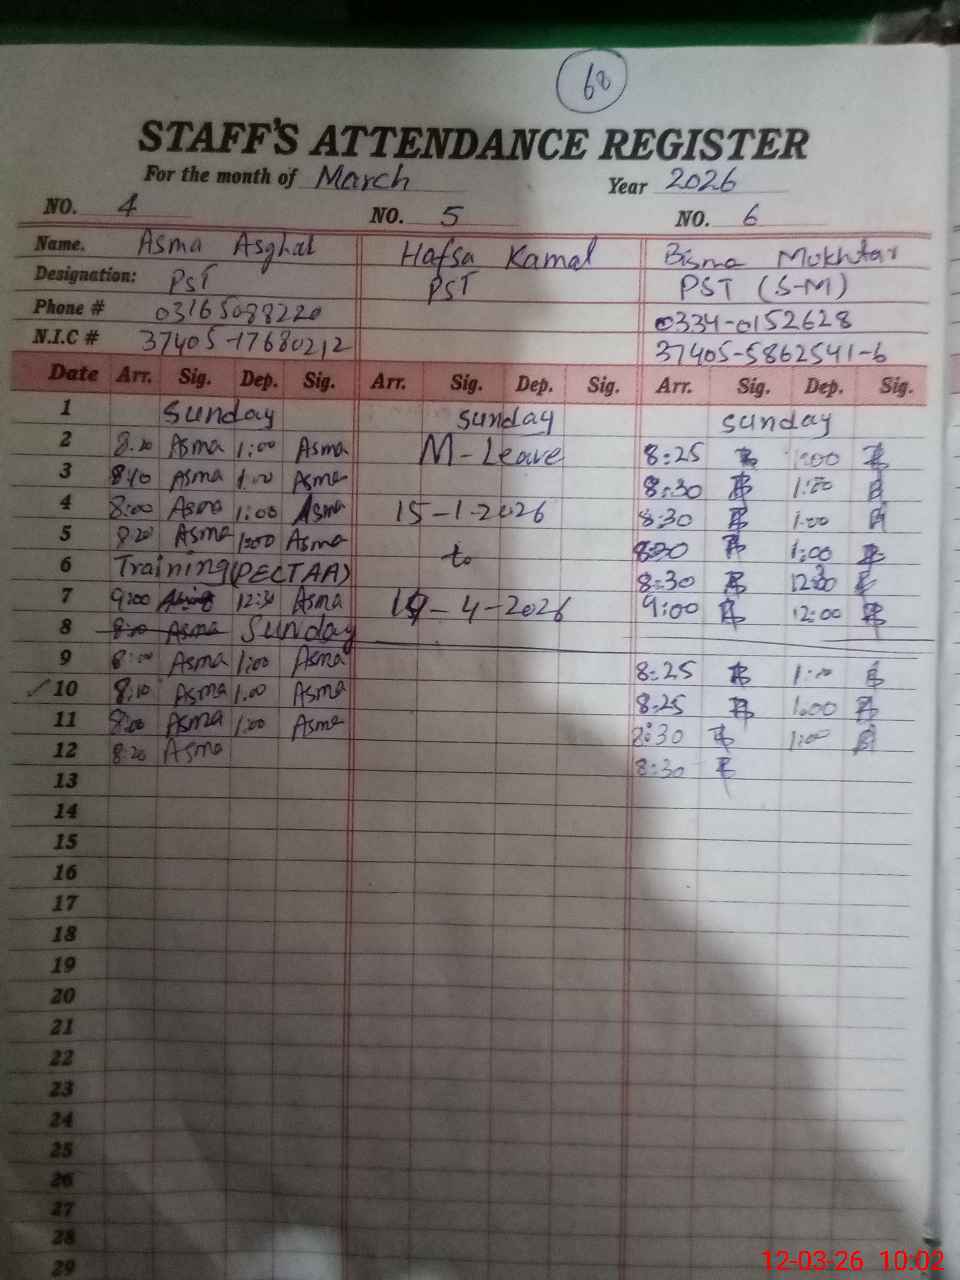 68
STAFF'S ATTENDANCE REGISTER
For the month of March Year 2026
NO. 4 NO. 5 NO. 6
Name. Asma Asghat Hafsa Kamal Bisma Mukhtar
Designation: PST PST PST (S-M)
Phone # 03165088220 0334-0152628
N.I.C # 37405-17680212 37405-5862541-6
Date Arr. Sig. Dep. Sig. Arr. Sig. Dep. Sig. Arr. Sig. Dep. Sig.
1 Sunday Sunday Sunday
2 8:20 Asma 1:00 Asma M-Leave 8:25 1:00
3 8:40 Asma 1:00 Asma 8:30 1:00
4 8:00 Asma 1:00 Asma 15-1-2026 8:30 1:00
5 8:20 Asma 1:00 Asma to 8:30 1:00
6 Training (PECTAA) 8:30 12:30
7 9:00 12:30 Asma 4-2026 9:00 12:00
8 Asma Sunday
9 8:00 Asma 1:00 Asma 8:25 1:00
10 8:10 Asma 1.00 Asma 8:25 1:00
11 8:00 Asma 1:00 Asma 8:30 1:00
12 8:20 Asma 8:30
13
14
15
16
17
18
19
20
21
22
23
24
25
26
27
28
29
12-03-26 10:02